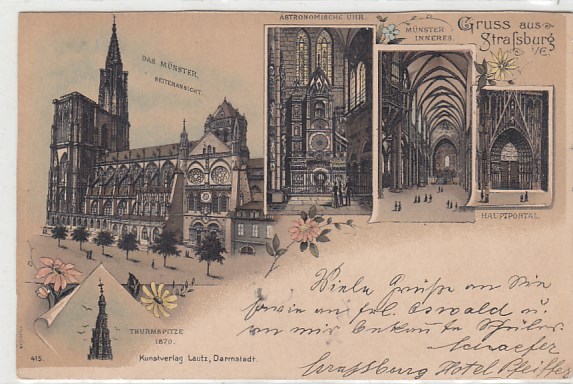 Gruss aus
Strassburg
i/E.
ASTRONOMISCHE UHR.
MÜNSTER
INNERES.
DAS MÜNSTER,
SEITENANSICHT.
HAUPTPORTAL.
THURMSPITZE
1870.
415.
Kunstverlag Lautz, Darmstadt.
Viele Grüße an Sie
sowie an Frl. Oswald u.
an mir bekannte Schüler
Schaefer
Strassburg Hotel Pfeiffer